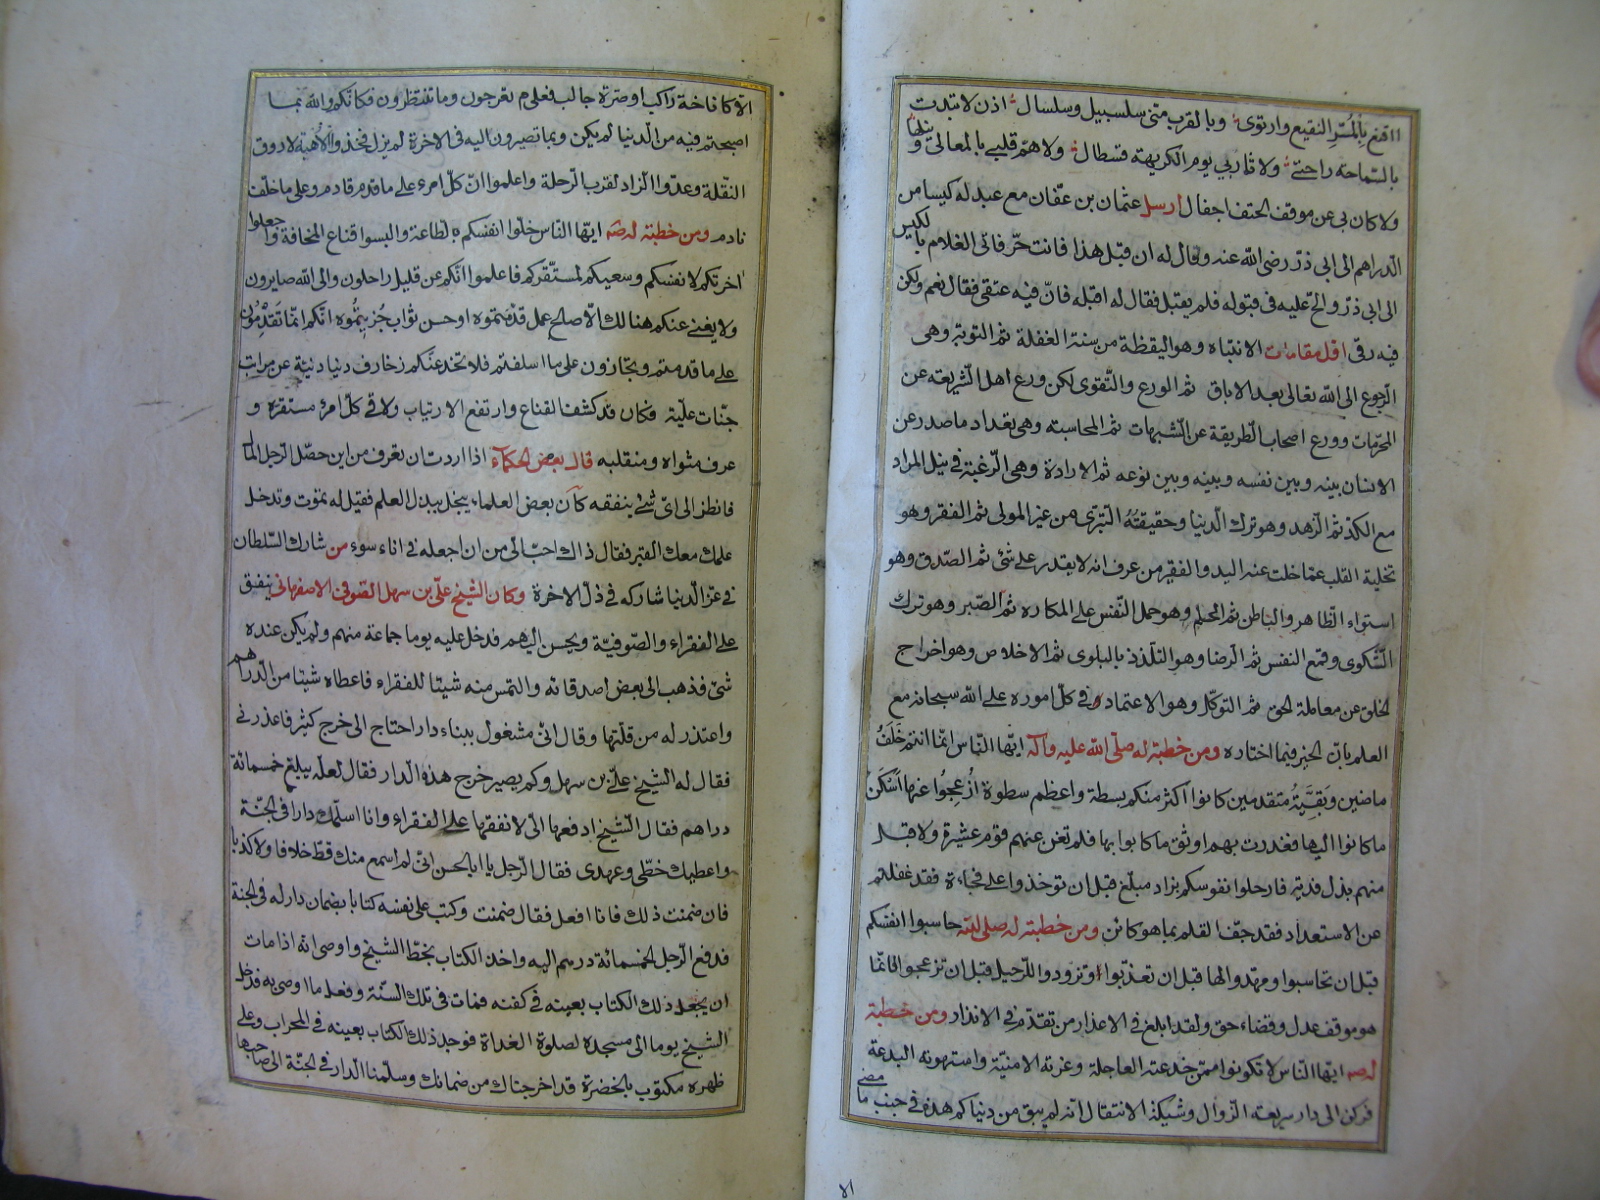 ااقنع بالمسّر النقيع وارتوى وبالقرب منّى سلسبيل وسلسال اذن لا تبدت
بالسّماحته راحتى ولا ثار بي يوم الكريهته قسطال ولا هتم قلبے بالمعالى و نيلها
ولا كان بى عن موقف الحتف اجفال ارسل عثمان بن عفّان مع عبد له كيسا من
الدّراهم الى ابى ذرّ رضى الله عنه وقال له ان قبل هذا فانت حرّ فاتى الغلام بالكيس
الى ابى ذرّ والحّ عليه فى قبوله فلم يقبل فقال له اقبله فانّ فيه عتقى فقال نعم ولكن
فيه رقى اوّل مقامات الانتباه وهو اليقظة من سنة الغفلة ثم التوبة وهى
الرجوع الى الله تعالى بعد الاباق ثم الورع والتّقوى لكن ورع اهل الشّريعة عن
المحرّمات وورع اصحاب الطّريقة عن الشّبهات ثم المحاسبة وهى تعداد ما صدر عن
الانسان بينه وبين نفسه وبينه وبين نوعه ثم الارادة وهى الرّغبة فى نيل المراد
مع الكدّ ثم الزّهد وهو ترك الدّنيا وحقيقته التّبرّى من غير المولى ثم الفقر وهو
تخلية القلب عمّا خلت عنه اليد والفقير من عرف انه لا يقدر على شئ ثم الصّدق وهو
استواء الظّاهر والباطن ثم الحلم وهو حمل النّفس على المكاره ثم الصّبر وهو ترك
الشّكوى وقمع النفس ثم الرضا وهو التلّذذ بالبلوى ثم الاخلاص وهو اخراج
الخلق عن معاملة الحق ثم التوكّل وهو الاعتماد فى كلّ اموره على الله سبحانه مع
العلم بانّ الخير فيما اختاره ومن خطبته له صلّى الله عليه وآله ايّها النّاس انّما انتم خَلَفُ
ماضين وبَقِيَّةُ متقدمين كانوا اكثر منكم بسطة واعظم سطوة اُزعِجُوا عنها اَسْكَنَ
ما كانوا اليها فغدرت بهم اوثق ما كانوا بها فلم تغن عنهم قوم عشيرة ولا قبل
منهم بذل فدية فارحلوا نفوسكم بزاد مبلّغ قبل ان توخذوا على فجاءة فقد غفلتم
عن الاستعداد فقد جفّ القلم بما هو كائن ومن خطبته له صلى الله حاسبوا انفسكم
قبل ان تحاسبوا ومهّدوا لها قبل ان تعذّبوا وتزودوا للرّحيل قبل ان تزعجوا فانّما
هو موقف عدل وقضاء حق ولقد ابلغ فى الاعذار من تقدّم فى الانذار ومن خطبة
له صه ايّها النّاس لا تكونوا ممّن خدعته العاجلة وغرّته الامنيّة واستهوته البدعة
فركن الى دار سريعة الزّوال وشيكة الانتقال انّه لم يبق من دنياكم هذه فى جنب ما مضى
٨١
الّا كاناخة راكب او صرّة حالب فعلى م تعرجون وما تنتظرون فكانّكم والله بما
اصبحتم فيه من الدّنيا لم يكن وبما تصيرون اليه فى الاخرة لم يزل فخذوا الاُهبة لازوف
النقلة وعدّوا الزاد لقرب الرّحلة واعلموا انّ كلّ امرء على ما قدّم قادم وعلى ما خلّف
نادم ومن خطبته له صه ايّها النّاس خلّوا انفسكم بالطاعة والبسوا قناع المخافة واجعلوا
اخرتكم لانفسكم وسعيكم لمستقّركم فاعلموا انّكم عن قليل راحلون والى الله صايرون
ولا يغنى عنكم هنالك الّا صالح عمل قدّمتموه او حسن ثواب حُزتِمُوه انّكم انّما تَقدِمُون
على ما قدمتم وتجازون على ما اسلفتم فلا تخدعنّكم زخارف دنيا دنيّة عن مراتب
جنّات عليّة فكان قد كشف القناع وارتفع الارتياب ولاقى كلّ امرئ مستقرّه و
عرف مثواه ومنقلبه قال بعض الحكمآء اذا اردت ان تعرف من اين حصّل الرّجل المال
فانظر الى اىّ شئ ينفقه كان بعض العلماء يبخل ببذل العلم فقيل له تموت وتدخل
علمك معك القبر فقال ذاك احبّ الىّ من ان اجعله فى اناء سوء من شارك السّلطان
فى عزّ الدّنيا شاركه فى ذلّ الاخرة وكان الشيخ علىّ بن سهل الصّوفى الاصفهانى ينفق
على الفقراء والصّوفيّة ويحسن اليهم فدخل عليه يوما جماعة منهم ولم يكن عنده
شئ فذهب الى بعض اصدقائه والتمس منه شيئا للفقراء فاعطاه شيئا من الدّراهم
واعتذر له من قلّتها وقال انّى مشغول ببناء دار احتاج الى خرج كثير فاعذرنى
فقال له الشيخ علىّ بن سهل وكم يصير خرج هذه الدار فقال لعلّه يبلغ خمسمائة
دراهم فقال الشيخ ادفعها الىّ لانفقها على الفقراء وانا اسلّمك دارا فى الجنّة
واعطيك خطّى وعهدى فقال الرّجل يا ابا الحسن انّى لم اسمع منك قطّ خلافا ولا كذبا
فان ضمنت ذلك فانا افعل فقال ضمنت وكتب على نفسه كتابا بضمان دار له فى الجنة
فدفع الرّجل الخمسمائة درهم اليه واخذ الكتاب بخطّ الشيخ واوصى انّه اذا مات
ان يجعل ذلك الكتاب بعينه فى كفنه فمات فى تلك السّنة وفعل ما اوصى به فدخل
الشيخ يوما الى مسجده لصلوة الغداة فوجد ذلك الكتاب بعينه فى المحراب وعلى
ظهره مكتوب بالخضرة قد اخرجناك من ضمانك وسلّمنا الدّار فى الجنّة الى صاحبها